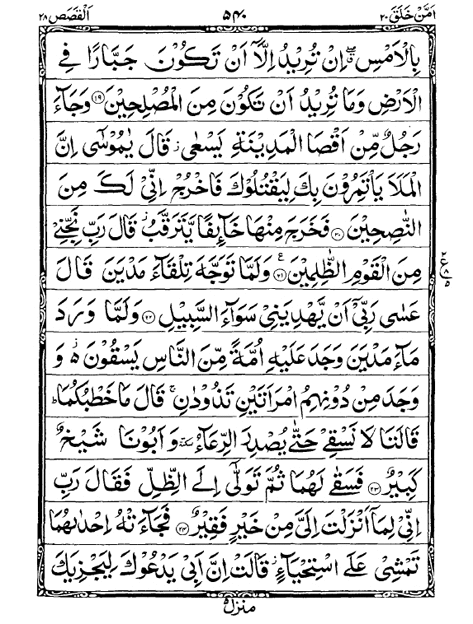 اَمَّنْ خَلَقَ ٢٠ ۵۴۰ اَلْقَصَص ٢٨
بِالْاَمْسِ ۖ اِنْ تُرِيْدُ اِلَّاۤ اَنْ تَكُوْنَ جَبَّارًا فِي
الْاَرْضِ وَمَا تُرِيْدُ اَنْ تَكُوْنَ مِنَ الْمُصْلِحِيْنَ ﴿١٩﴾ وَجَآءَ
رَجُلٌ مِّنْ اَقْصَا الْمَدِيْنَةِ يَسْعٰى ۫ قَالَ يٰمُوْسٰۤى اِنَّ
الْمَلَاَ يَاْتَمِرُوْنَ بِكَ لِيَقْتُلُوْكَ فَاخْرُجْ اِنِّيْ لَكَ مِنَ
النّٰصِحِيْنَ ﴿٢٠﴾ فَخَرَجَ مِنْهَا خَآئِفًا يَّتَرَقَّبُ ۫ قَالَ رَبِّ نَجِّنِيْ
مِنَ الْقَوْمِ الظّٰلِمِيْنَ ﴿٢١﴾ وَلَمَّا تَوَجَّهَ تِلْقَآءَ مَدْيَنَ قَالَ
عَسٰى رَبِّيْۤ اَنْ يَّهْدِيَنِيْ سَوَآءَ السَّبِيْلِ ﴿٢٢﴾ وَلَمَّا وَرَدَ
مَآءَ مَدْيَنَ وَجَدَ عَلَيْهِ اُمَّةً مِّنَ النَّاسِ يَسْقُوْنَ ۬ وَ
وَجَدَ مِنْ دُوْنِهِمُ امْرَاَتَيْنِ تَذُوْدٰنِ ۚ قَالَ مَا خَطْبُكُمَا ؕ
قَالَتَا لَا نَسْقِيْ حَتّٰى يُصْدِرَ الرِّعَآءُ ٚ وَاَبُوْنَا شَيْخٌ
كَبِيْرٌ ﴿٢٣﴾ فَسَقٰى لَهُمَا ثُمَّ تَوَلّٰۤى اِلَى الظِّلِّ فَقَالَ رَبِّ
اِنِّيْ لِمَاۤ اَنْزَلْتَ اِلَيَّ مِنْ خَيْرٍ فَقِيْرٌ ﴿٢٤﴾ فَجَآءَتْهُ اِحْدٰىهُمَا
تَمْشِيْ عَلَى اسْتِحْيَآءٍ ۫ قَالَتْ اِنَّ اَبِيْ يَدْعُوْكَ لِيَجْزِيَكَ
منزل ۵